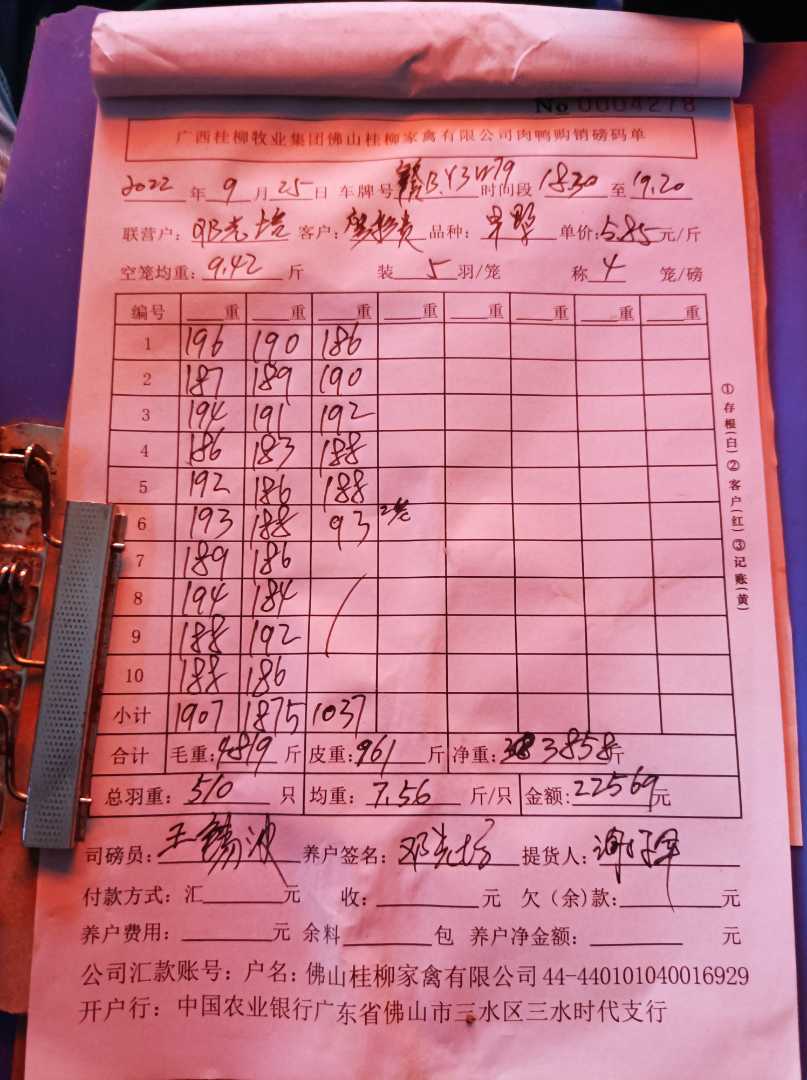 No 0004278
广西桂柳牧业集团佛山桂柳家禽有限公司肉鸭购销磅码单
2022 年 9 月 25 日 车牌号 赣B.Y3W79 时间段 18.30 至 19.20
联营户: 邓光培 客户: 品种: 单价: 5.85 元/斤
空笼均重: 9.42 斤 装 5 羽/笼 称 4 笼/磅
编号 重 重 重 重 重 重 重 重
1 196 190 186
2 187 189 190
3 194 191 192
4 186 183 188
5 192 186 188
6 193 188 93 2笼
7 189 186
8 194 184
9 188 192
10 188 186
小计 1907 1875 1037
合计 毛重: 4819 斤 皮重: 961 斤 净重: 3858 斤
总羽重: 510 只 均重: 7.56 斤/只 金额: 22569 元
司磅员: 养户签名: 提货人:
付款方式: 汇 元 收: 元 欠（余）款: 元
养户费用: 元 余料 包 养户净金额: 元
公司汇款账号: 户名: 佛山桂柳家禽有限公司 44-440101040016929
开户行: 中国农业银行广东省佛山市三水区三水时代支行
①存根(白)②客户(红)③记账(黄)